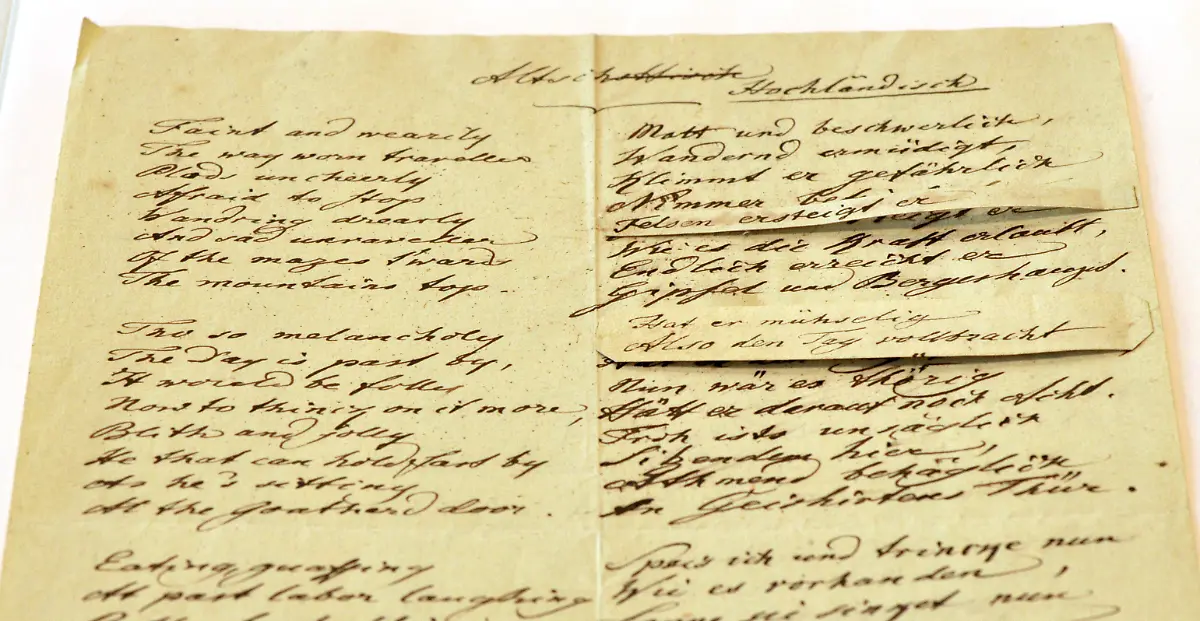 Hochländisch
Faint and wearily
The way worn traveller
Plods uncheerly
Afraid to stop
Wandring drearly
And sad unraveller
Of the mazes t'ward
The mountains top.
Tho so melancholy
The Day is past by,
It would be folly
Now to on it more,
Blith and jolly
He that can hold fast by
As he's sitting
At the Goatherd door.
Eating, quaffing
At past labor laughing
Matt und beschwerlich,
Wandernd ermüdigt,
Klimmt er gefährlich
Nimmer
Felsen ersteigt er
Wie es die Kraft erlaubt,
Endlich erreicht er
Gipfel und Bergeshaupt.
Hat er mühselig
Also den Tag vollbracht
Nun wär es thörig
Hätt er darauf noch Acht.
Froh ists unsäglich
Sitzendem hier,
Athmend behäglich
An Geishirtens Thür.
Speis ich und trincke nun
Wie es vorhanden,
nun